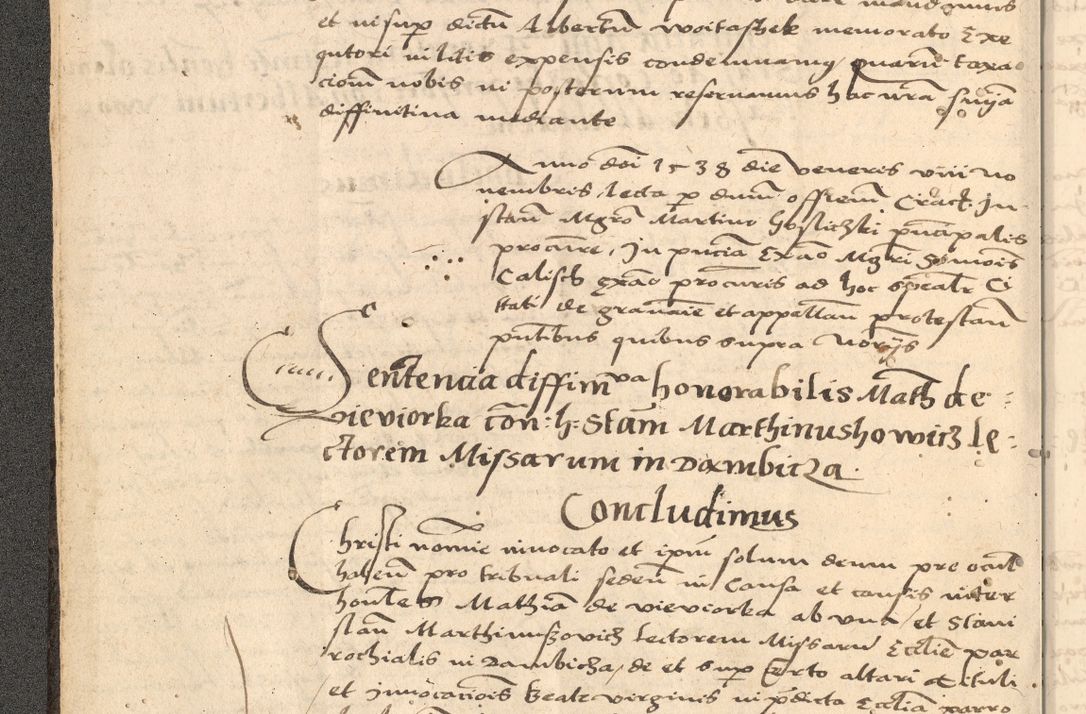 et insup dictu Albertum Woitaszek memorato Exe
qutori in litis expensis condemnamus quaru taxa
cionem nobis in posterum reservamus hac nra snia
diffinitiva mediante
Anno dni 1538 die veneris viii no
vembris lecta p dnum officiem Crac. In
stan Mgro Martino procuratore, In pncia Mgri Simois
Calisch procuris ad hoc spealr Ci
tati de gravaie et appellan protestan
pntibus quibus supra Notrijs
Sententia diffinitva honorabilis Math de
vieviorka con: h: Stam Marthinushowicz le=
ctorem Missarum in Dambicza.
Concludimus
Christi nomine invocato et ipm solum deum pre ocul
haben pro tribunali seden in Causa et causis inter
honbles Mathia de vieviorka ab una et Stani
slau Marthinuszovicz lectorem Missaru Ecclie par
rochialis in Dambicza, de et sup certo altari tituli
et invocationis beate virginis in pdicta Ecclia parro